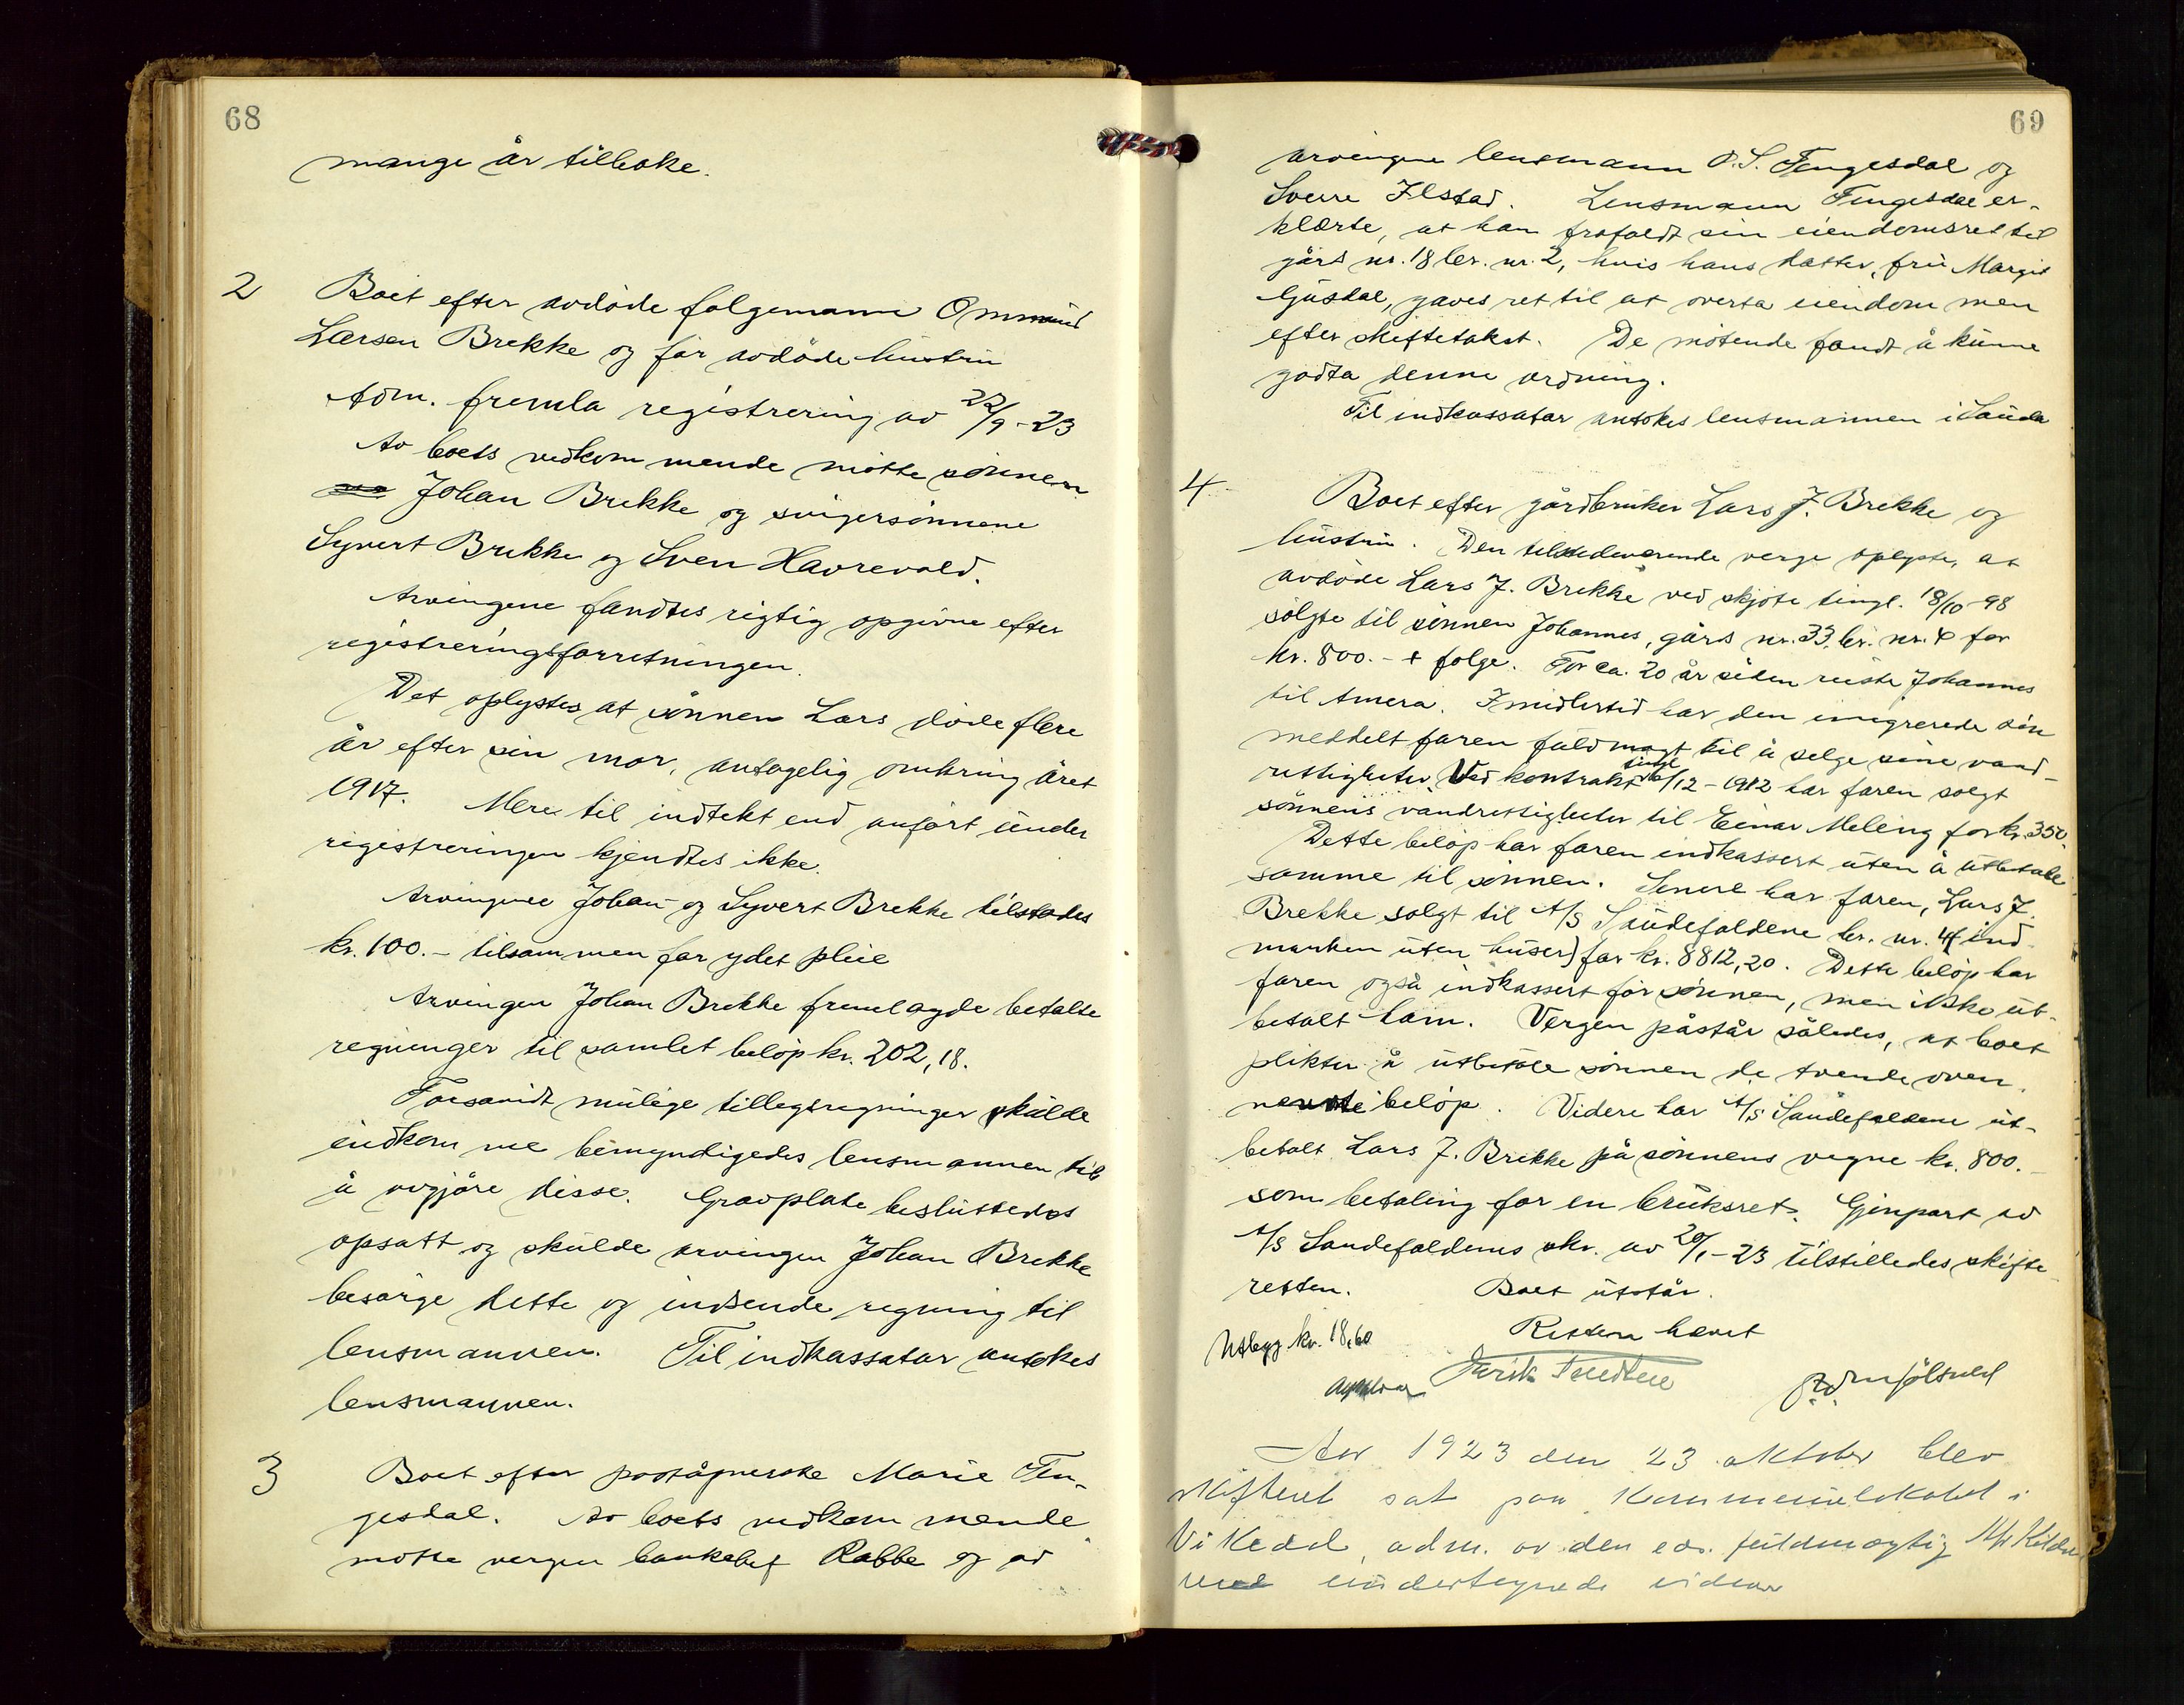 68
mange år tilbake.
2 Boet efter avdöde folgemann Ommund
Larsen Brekke og før avdöde hustru
Adm. fremla registrering av 22/9-23
Av boets vedkommende møtte sönnen
Johan Brekke og svigersönnene
Syvert Brekke og Sven Havrevold.
Arvingene fandtes rigtig opgivne efter
registreringsforretningen.
Det oplystes at sönnen Lars döde flere
år efter sin mor, antagelig omkring året
1917. Mere til indtekt end anført under
registreringen kjendtes ikke.
Arvingene Johan og Syvert Brekke tilstodes
kr. 100.- tilsammen for ydet pleie
Arvingen Johan Brekke fremlagde betalte
regninger til samlet belöp kr. 202,18.
Forsavidt mulige tillegsregninger skulde
indkomme bemyndigedes lensmannen til
å avgjöre disse. Gravplate besluttedes
opsatt og skulde arvingen Johan Brekke
besörge dette og indsende regning til
lensmannen. Til indkassator antokes
lensmannen.
3 Boet efter poståpnerske Marie Fen-
gesdal. Av boets vedkommende
møtte vergen bankbest Rabbe og av
69
arvingene lensmann O.S. Fengesdal og
Sverre Ilstad. Lensmann Fengesdal er-
klærte, at han frafaldt sin eiendomsret til
gårs nr. 18 br. nr. 2, hvis hans datter, fru Margit
Gusdal, gaves ret til at overta eiendommen
efter skiftetakst. De møtende fandt å kunne
godta denne ordning.
Til indkassator antokes lensmannen i Sauda
4 Boet efter gårdbruker Lars J. Brekke og
hustru. Den tilstedeværende verge oplyste, at
avdöde Lars J. Brekke ved skjöte tingl. 18/10-98
solgte til sönnen Johannes, gårs nr. 33, br. nr. 4 for
kr. 800.- + folge. For ca. 20 år siden reiste Johannes
til Amera. Imidlertid har den imigrerede sön
meddelt faren fuldmagt til å selge sine vand-
rettigheter. Ved kontrakt tingl 6/12-1912 har faren solgt
sönnens vandrettigheter til Einar Meling for kr. 350.
Dette belöp har faren indkassert uten å utbetale
samme til sönnen. Senere har faren, Lars J.
Brekke solgt til A/S Saudefaldene br. nr. 4 (ind-
marken uten huser) for kr. 8812,20. Dette belöp har
faren også indkassert for sönnen, men ikke ut-
betalt ham. Vergen påstår således, at boet
plikter å utbetale sönnen de tvende oven-
nevnte belöp. Videre har A/S Saudefaldene ut-
betalt Lars J. Brekke på sönnens vegne kr. 800.-
som betaling for en bruksret. Gjenpart av
A/S Saudefaldenes skr. av 20/1-23 tilstilledes skifte-
retten. Boet utstår.
Retten hævet
Utlegg kr. 18,60
Aar 1923 den 23 oktober blev
skifteret sat paa Kommunelokalet i
Vikedal, adm. av den eds. fuldmægtig
med undertegnede vidner